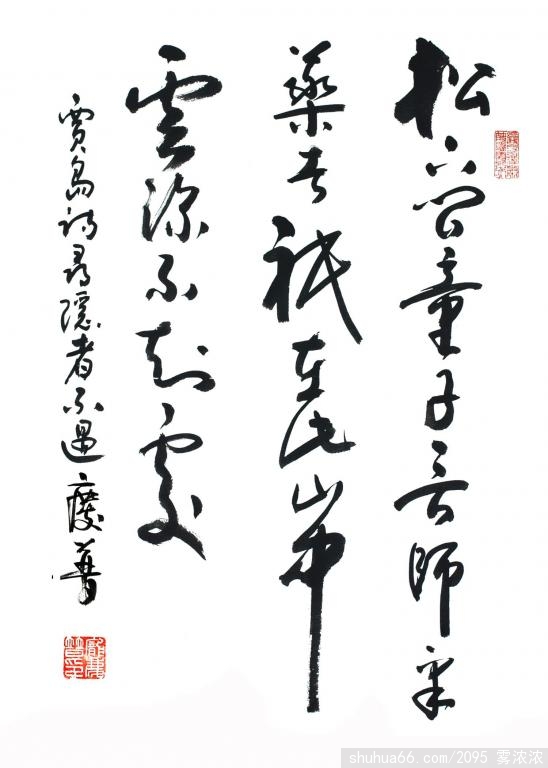 松下問童子言師采
藥去祇在此山中
雲深不知處
賈島詩尋隱者不遇 普
shuhua66.com/2095 雾浓浓